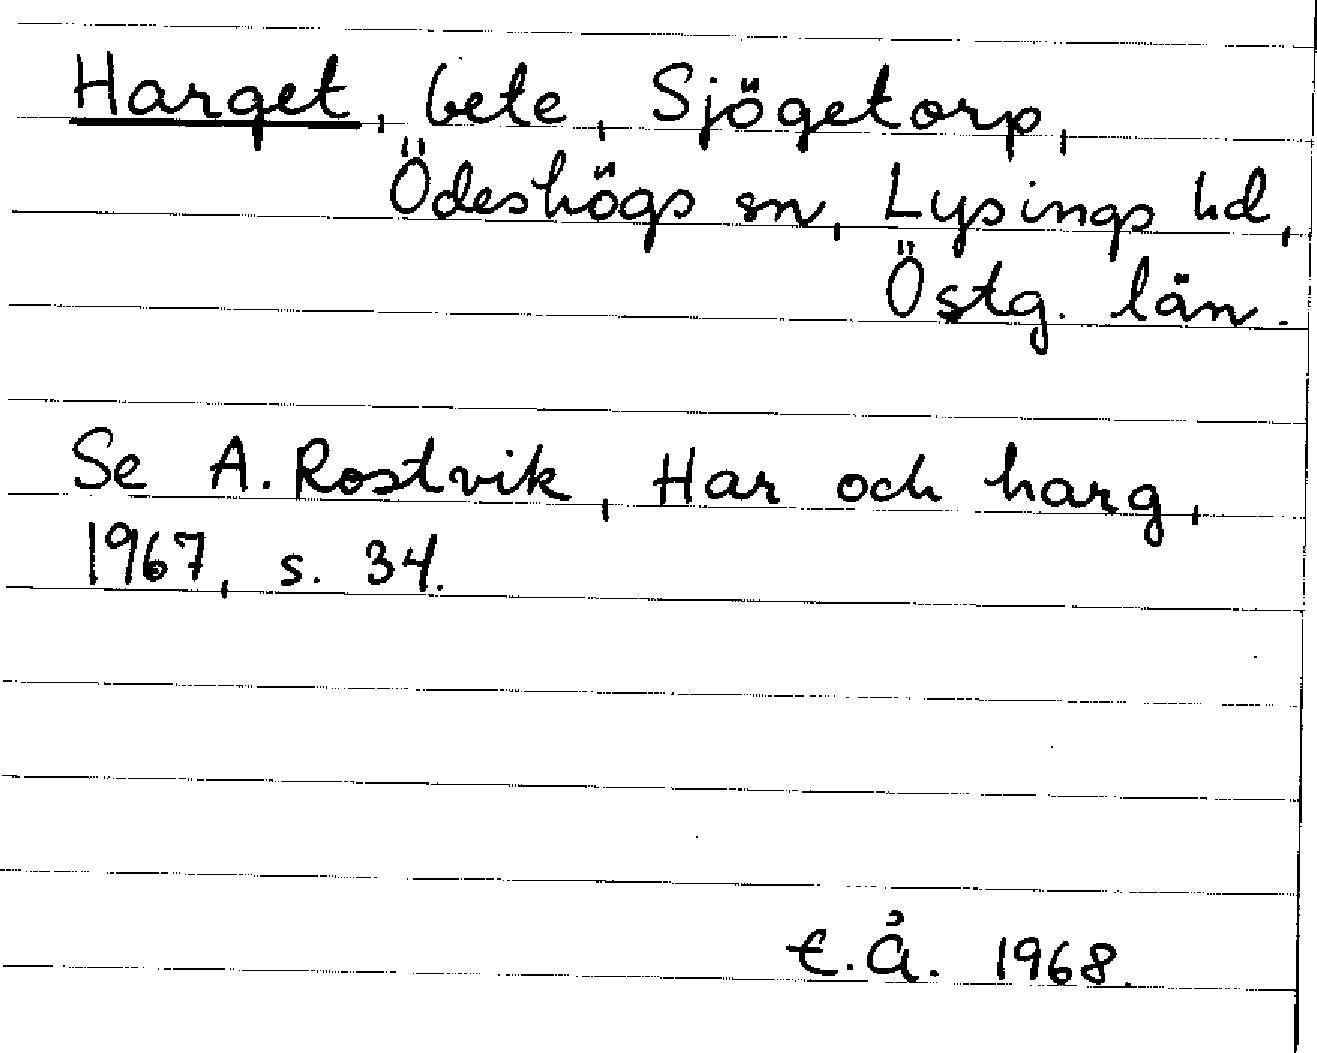 Harget, bete, Sjögetorp,
Ödeshögs sn, Lysings hd,
Östg. län.
Se A. Rostvik, Har och harg,
1967, s. 34.
E.Å. 1968.